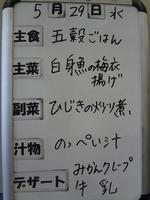 5月29日水
主食 五穀ごはん
主菜 白身魚の梅衣
揚げ
副菜 ひじきの炒り煮
汁物 のっぺい汁
デザート みかんクレープ
牛乳